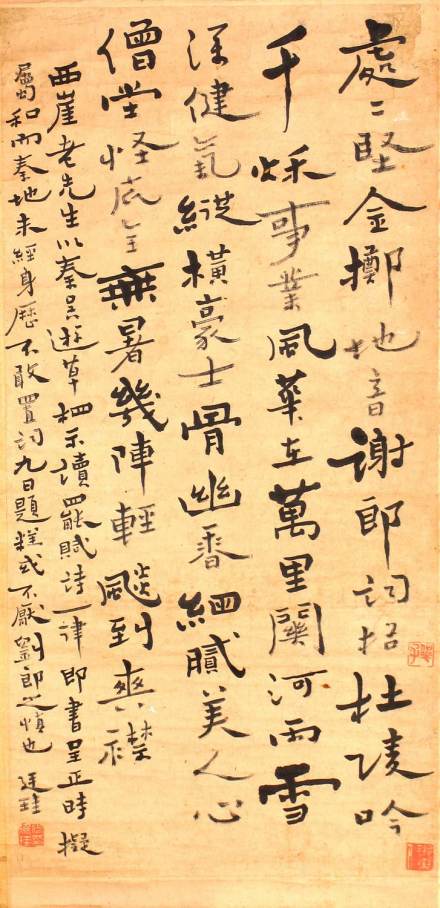 處〻堅金擲地音謝郎詞招杜陵吟
千秋事業風華在萬里關河雨雪
深健氣縱橫豪士骨幽香細膩美人心
僧堂怪底全無暑幾陣輕颸到爽襟
西崖老先生以秦吳遊草示讀罷賦詩一律即書呈正時擬
屬和而秦地未經身歷不敢置詞九日題糕或不厭劉郎之慎也 廷珪